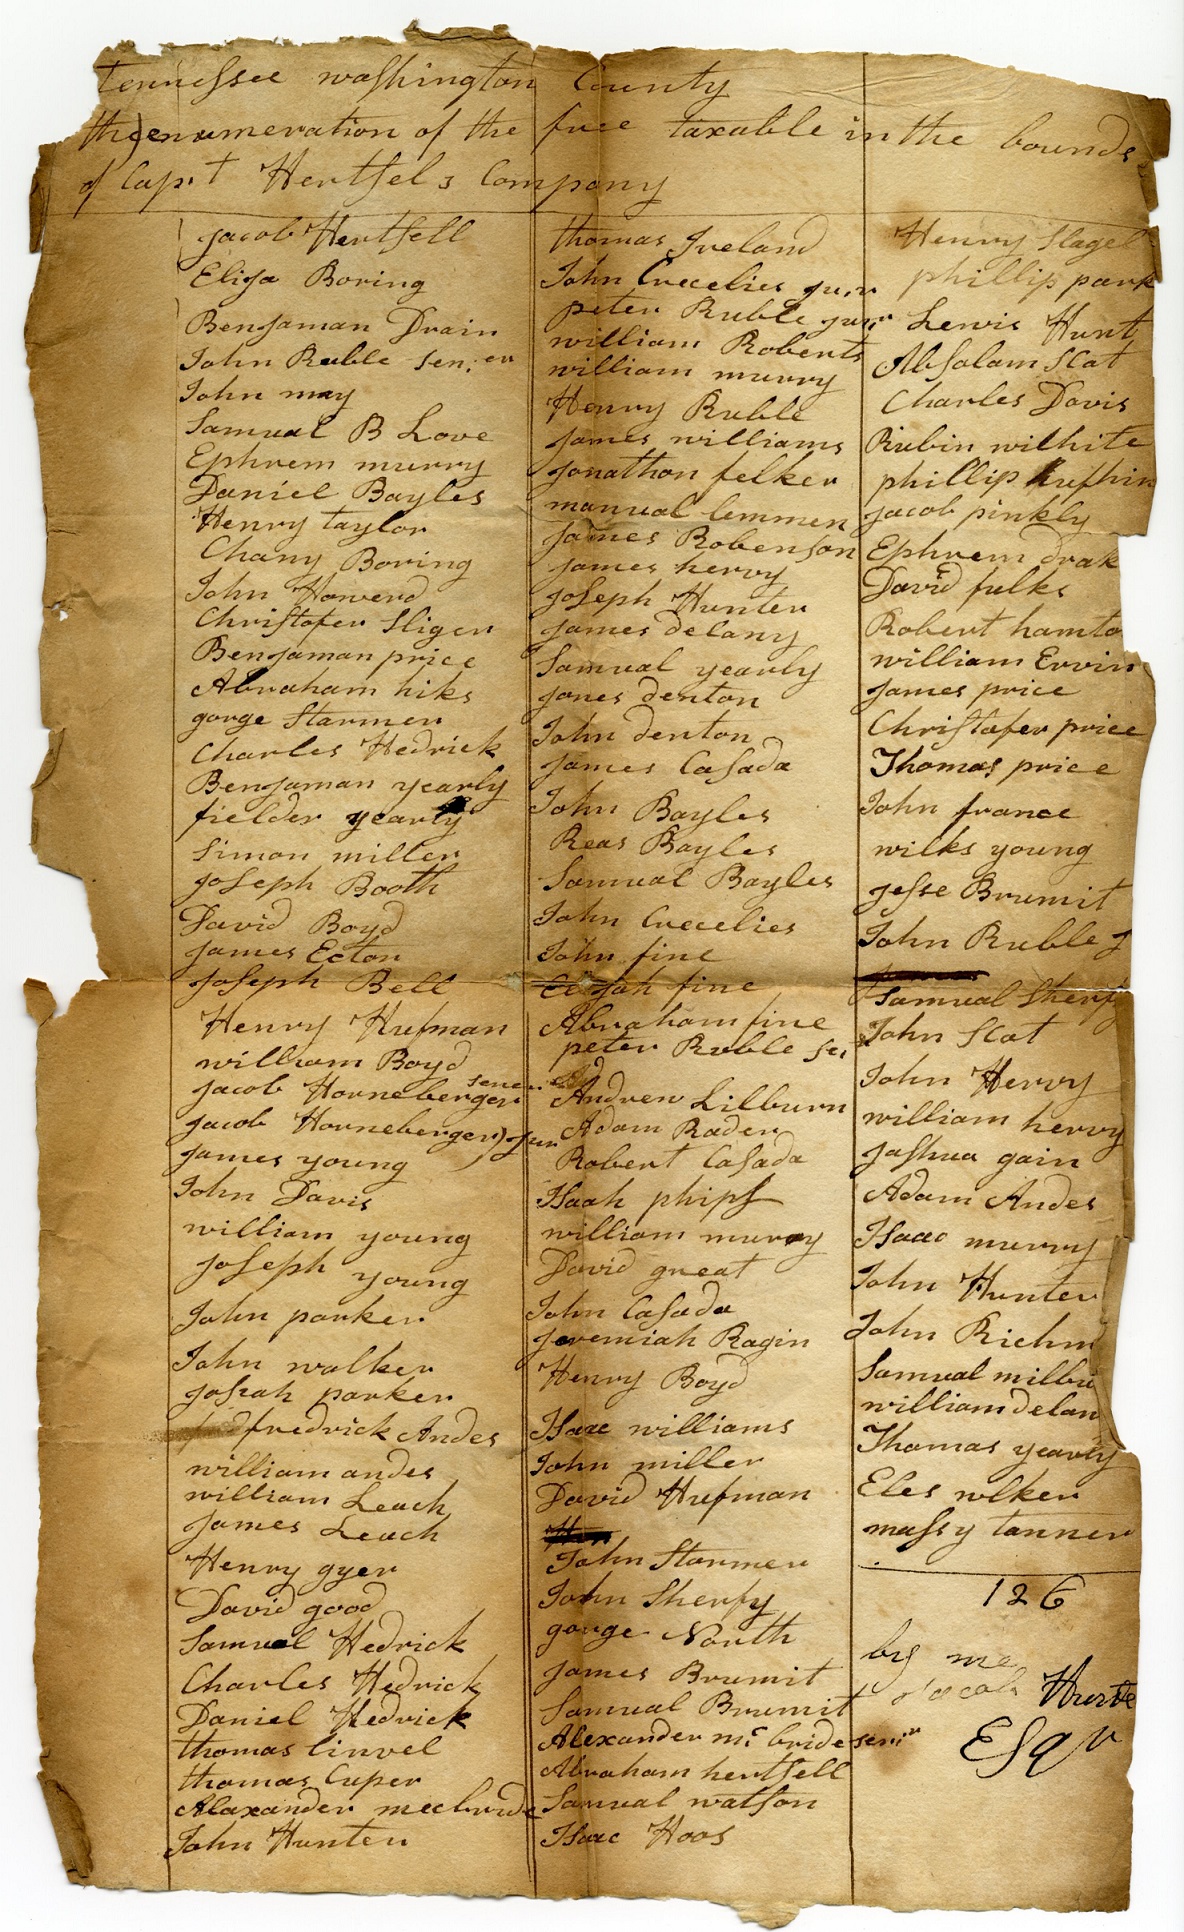 tennessee washington County
the enumeration of the free taxable in the bounds
of Capt Hertsels Company
Jacob Hertsell
Elija Boring
Benjaman Drain
John Ruble sen.er
John may
Samual B Love
Ephrem murry
Daniel Bayles
Henry taylor
Chany Boring
John Howerd
Christofer Sliger
Benjaman price
Abraham hiks
gorge Starmer
Charles Hedrick
Benjaman yearly
fielder yearly
Simon miller
Joseph Booth
David Boyd
James Ecton
Joseph Bell
Henry Hufman
william Boyd
Jacob Horneberger sener
Jacob Horneberger Jun
James young
John Davis
william young
Joseph young
John parker
John walker
Josiah parker
fredrick Andes
william andes
william Leach
James Leach
Henry gyer
David good
Samuel Hedrick
Charles Hedrick
Daniel Hedrick
thomas linvel
thomas Cuper
Alaxander mecbride
John Hunter
thomas Ireland
John Crecelies Junr
peter Ruble junr
william Roberts
william murry
Henry Ruble
James williams
Jonathon felker
manual lemmen
James Robenson
James hervy
Joseph Hunter
James delany
Samual yearly
Jones denton
John denton
James Casada
John Bayles
Reas Bayles
Samual Bayles
John Crecelies
John fine
Elijah fine
Abraham fine
peter Ruble se
Andrew Lilburn
Adam Rader
Robert Casada
Isaah phips
william murry
David great
John Casada
Jeremiah Ragin
Henry Boyd
Isaac williams
John miller
David Hufman
John Starmer
John Sherfy
gorge North
James Brumit
Samual Brumit
Alexander mc bride senir
Abraham hertsell
Samual watson
Isaac Hoos
Henry Slagel
phillip park
Lewis Hunt
Absolam Scat
Charles Davis
Riubin wilhite
phillip
Jacob pinkly
Ephrem drak
David fulks
Robert hamto
william Ervin
James price
Christofer price
Thomas price
John france
wilks young
Jesse Brumit
John Ruble J
Samual Sherfy
John Scat
John Hervy
william hervy
Joshua gain
Adam Andes
Isaac murry
John Hunter
John Richm
Samual milbu
william delan
Thomas yearly
Eles wlker
massy tanner
126
by me
Jacob Hurte
Esqr